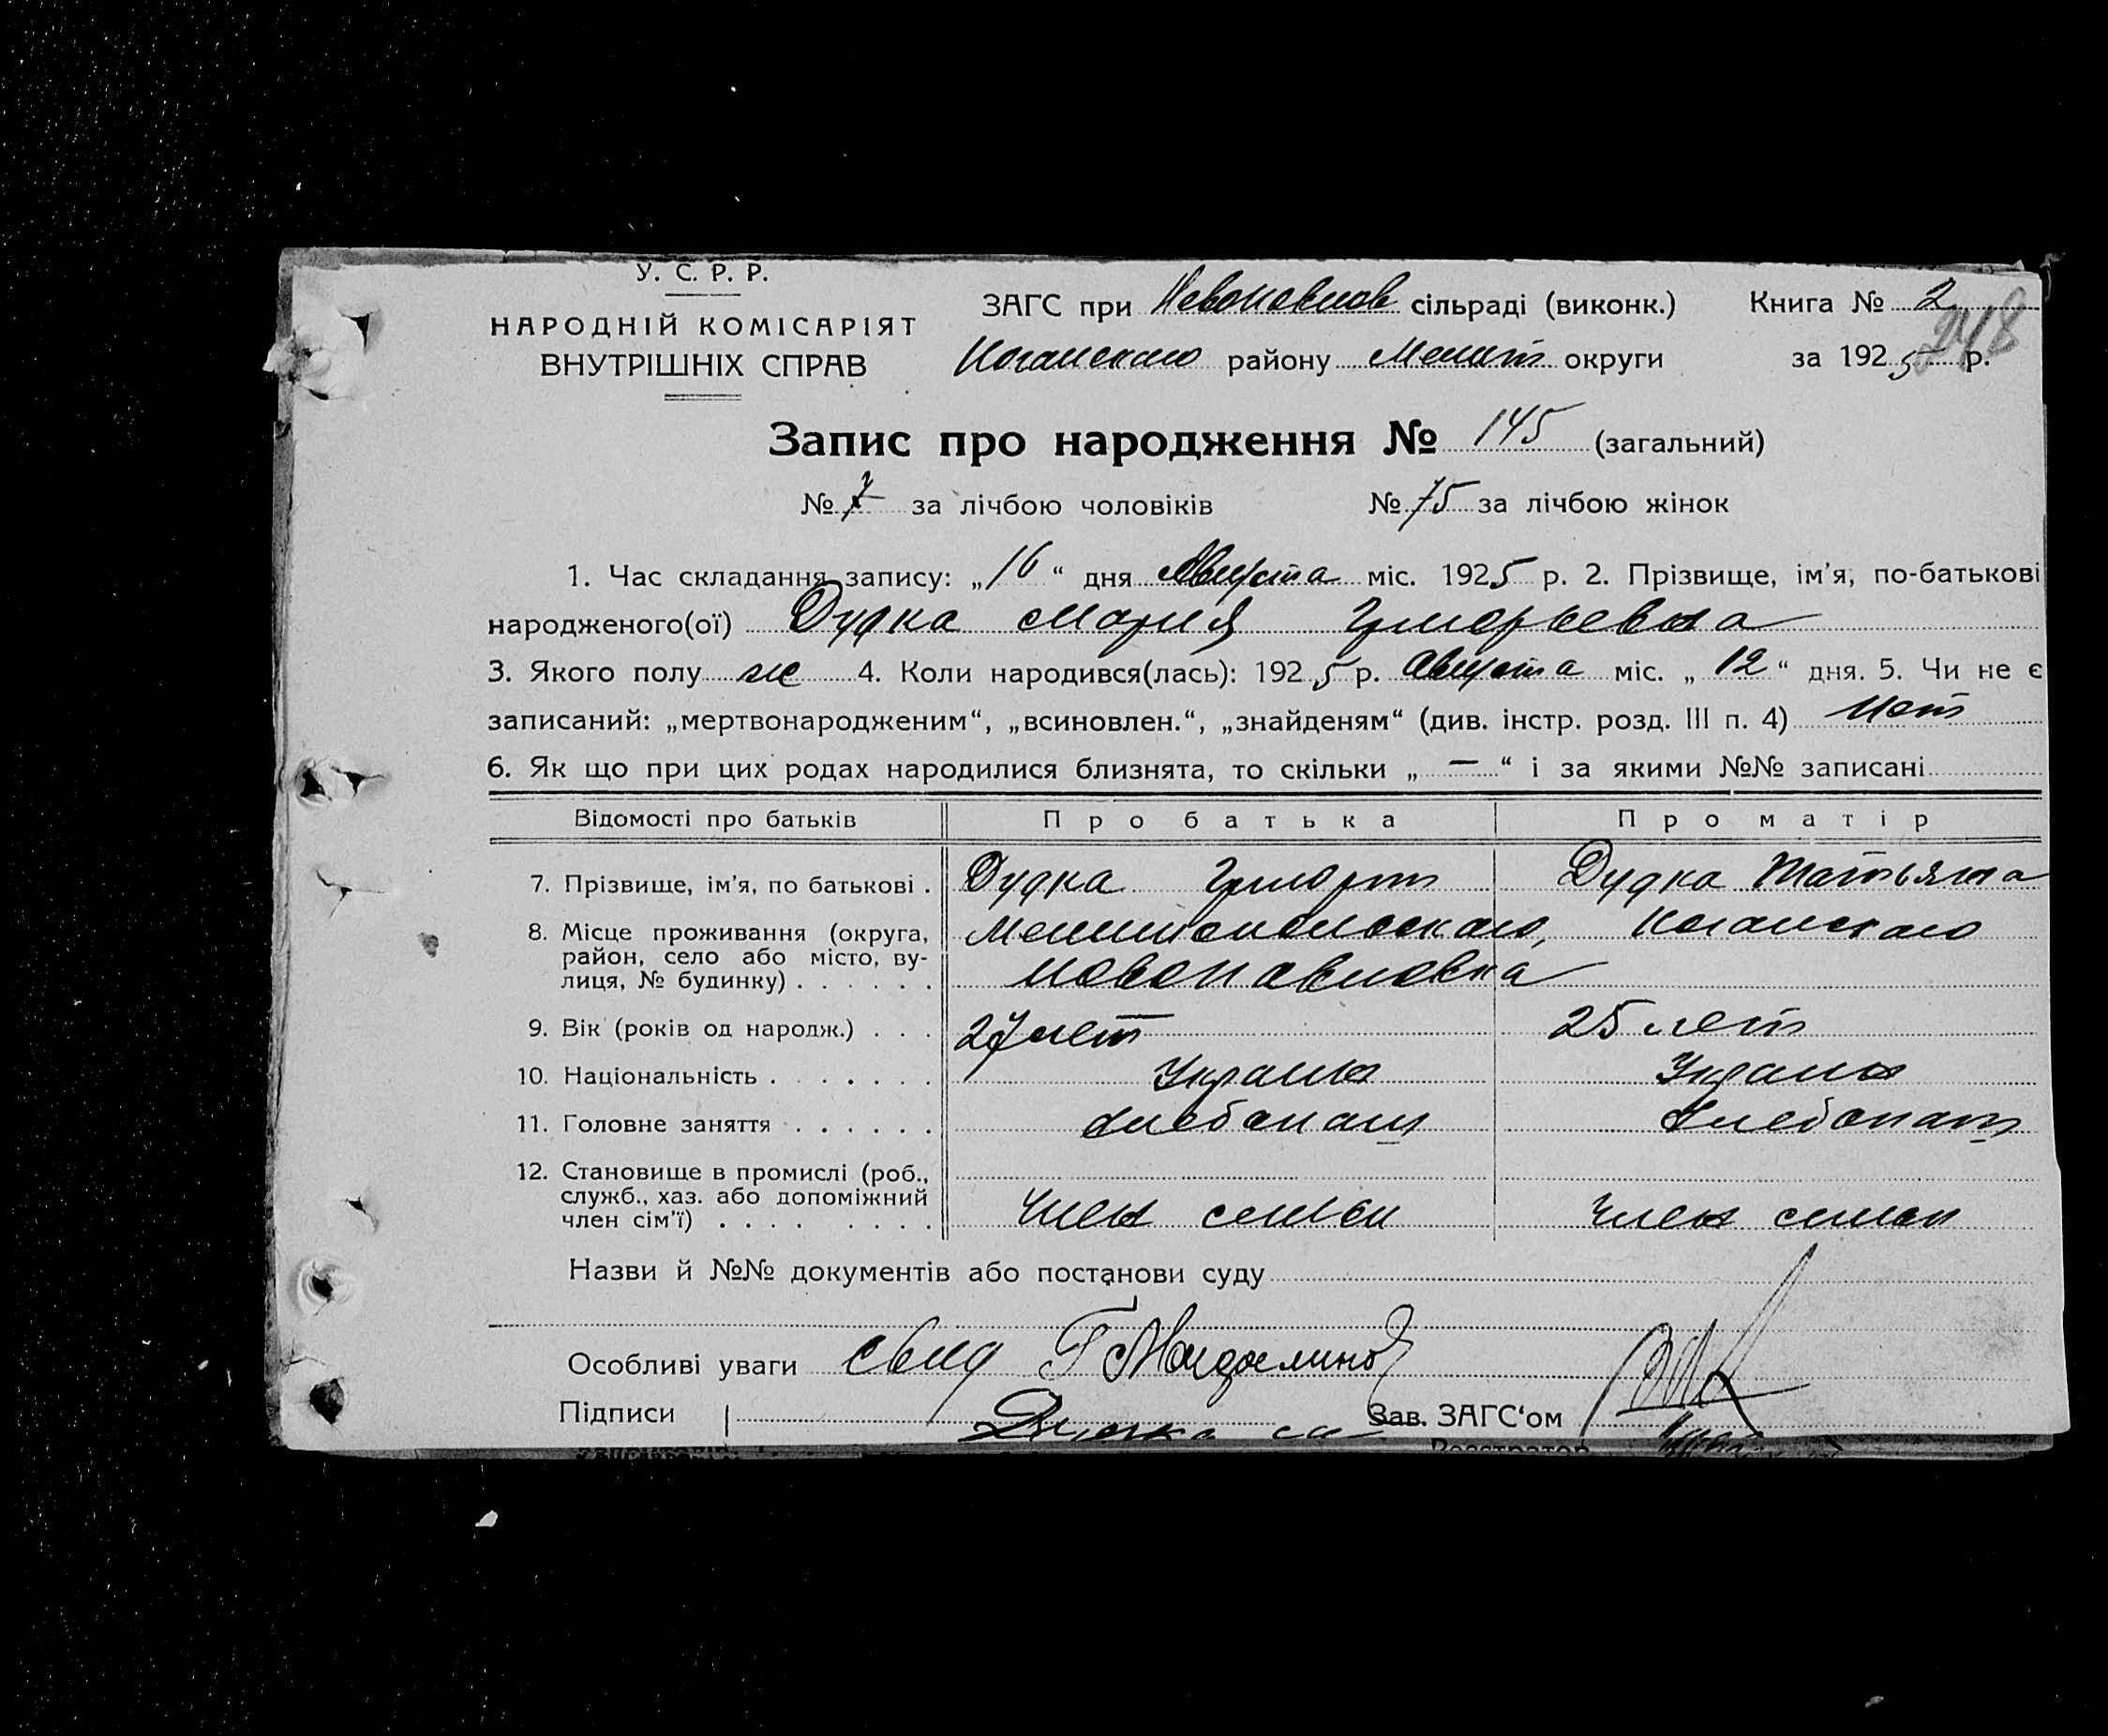 У. С. Р. Р.
НАРОДНІЙ КОМІСАРІЯТ
ВНУТРІШНІХ СПРАВ
ЗАГС при Новопавлов сільраді (виконк.) Книга № 2
248
Коганского району Мелит округи за 1925 р.
Запис про народження № 145 (загальний)
№ за лічбою чоловіків № 75 за лічбою жінок
1. Час складання запису: „16“ дня Августа міс. 1925 р. 2. Прізвище, ім'я, по-батькові
народженого(ої) Дудка Мария Григорьевна
3. Якого полу ж 4. Коли народився(лась): 1925 р. Августа міс. „12“ дня. 5. Чи не є
записаний: „мертвонародженим“, „всиновлен.“, „знайденям“ (див. інстр. розд. III п. 4) Нет
6. Як що при цих родах народилися близнята, то скільки „ — “ і за якими №№ записані
Відомості про батьків Про батька Про матір
7. Прізвище, ім'я, по батькові . Дудка Григорий Дудка Татьяна
8. Місце проживання (округа, Мелитопольского, Коганского
район, село або місто, ву-
лиця, № будинку) . . . . . . Новопавловка
9. Вік (років од народж.) . . . 27 лет 25 лет
10. Національність . . . . . . . Украин Украин
11. Головне заняття . . . . . . хлебопаш хлебопаш
12. Становище в промислі (роб.,
служб., хаз. або допоміжний
член сім'ї) . . . . . . . . Член семьи Член семьи
Назви й №№ документів або постанови суду
Особливі уваги свид Г
Підписи Зав. ЗАГС‘ом
Реєстратор